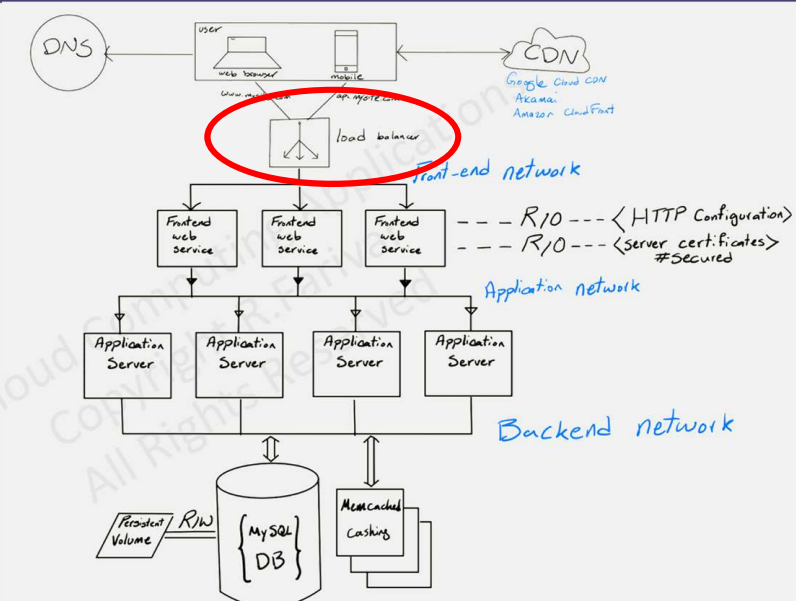 DNS
user
web browser
mobile
CDN
Google Cloud CDN
Akamai
Amazon CloudFront
api.mysite.com
load balancer
Front-end network
Frontend web service
Frontend web service
Frontend web service
--- R/O --- <HTTP Configuration>
--- R/O --- <server certificates>
#Secured
Application network
Application Server
Application Server
Application Server
Application Server
Backend network
Persistent Volume
R/W
{MySQL DB}
Memcached
Cashing
Cloud Computing Applications
Copyright R.Farivar
All Rights Reserved